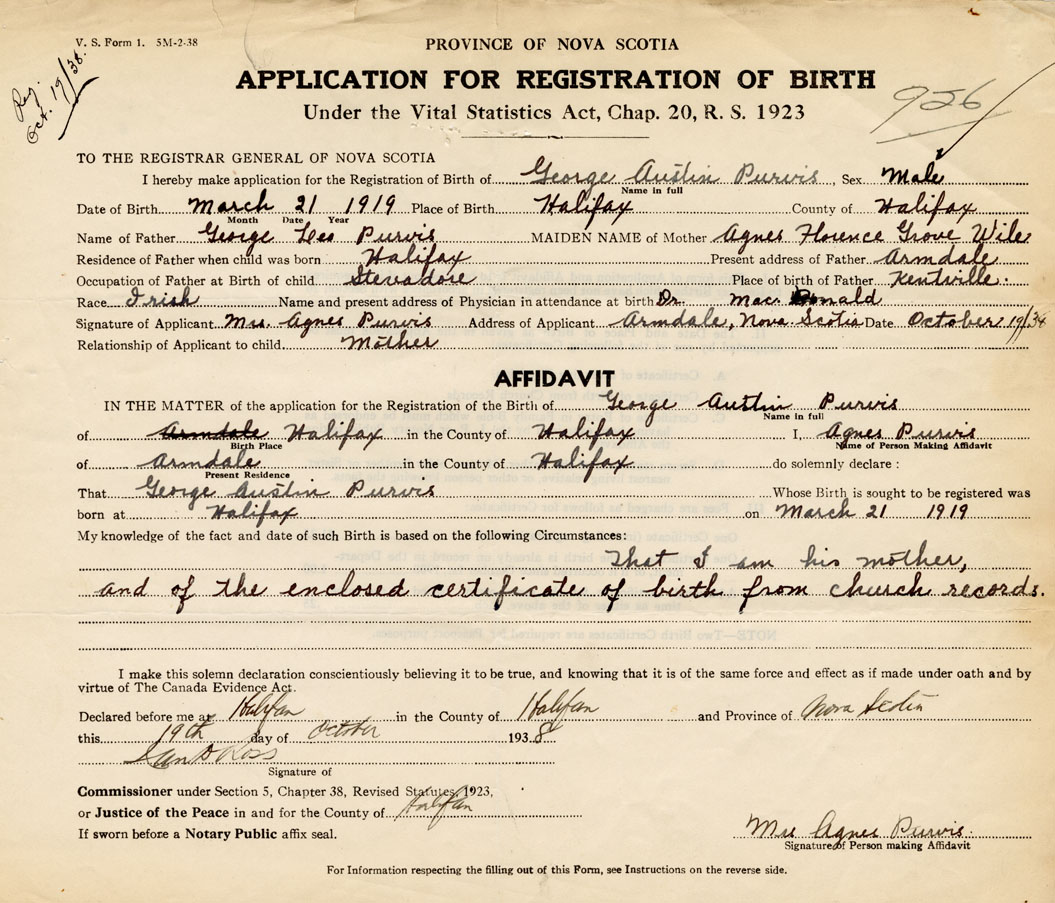 V. S. Form 1. 5M-2-38
Reg. Oct. 19/38.
PROVINCE OF NOVA SCOTIA
APPLICATION FOR REGISTRATION OF BIRTH
956
Under the Vital Statistics Act, Chap. 20, R. S. 1923
TO THE REGISTRAR GENERAL OF NOVA SCOTIA
I hereby make application for the Registration of Birth of George Austin Purvis, Sex Male
Name in full
Date of Birth March 21 1919 Place of Birth Halifax County of Halifax
Month Date Year
Name of Father George Leo Purvis MAIDEN NAME of Mother Agnes Florence Grove Wile
Residence of Father when child was born Halifax Present address of Father Armdale
Occupation of Father at Birth of child Stevadore Place of birth of Father Kentville.
Race Irish Name and present address of Physician in attendance at birth Dr. Mac Donald
Signature of Applicant Mrs. Agnes Purvis Address of Applicant Armdale, Nova Scotia Date October 19/38
Relationship of Applicant to child Mother
AFFIDAVIT
IN THE MATTER of the application for the Registration of the Birth of George Austin Purvis
Name in full
of Armdale Halifax in the County of Halifax I, Agnes Purvis
Birth Place Name of Person Making Affidavit
of Armdale in the County of Halifax do solemnly declare :
Present Residence
That George Austin Purvis Whose Birth is sought to be registered was
born at Halifax on March 21 1919
My knowledge of the fact and date of such Birth is based on the following Circumstances:
That I am his mother,
and of the enclosed certificate of birth from church records.
NOTE—Two Birth Certificates are required for Passport purposes.
I make this solemn declaration conscientiously believing it to be true, and knowing that it is of the same force and effect as if made under oath and by
virtue of The Canada Evidence Act.
Declared before me at Halifax in the County of Halifax and Province of Nova Scotia
this 19th day of October 1938
Ross
Signature of
Commissioner under Section 5, Chapter 38, Revised Statutes, 1923,
or Justice of the Peace in and for the County of Halifax
If sworn before a Notary Public affix seal.
Mrs Agnes Purvis.
Signature of Person making Affidavit
For Information respecting the filling out of this Form, see Instructions on the reverse side.